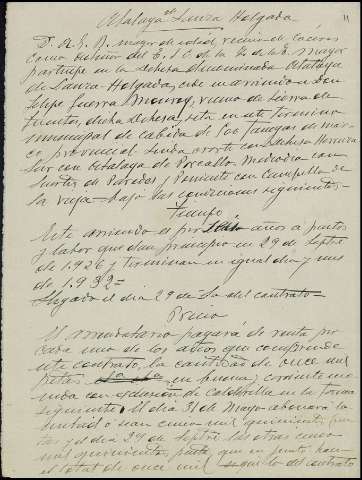 Atalaya de Lanza Holgada
11
D. A. G. R. mayor de edad, vecino de Cáceres
como                     de la D. Mayor
participe en la dehesa denominada Atalaya
de Lanza Holgada, cede en arriendo a Don
Felipe Guerra Monroy, vecino de Sierra de
Fuentes, dicha dehesa, sita en este termino
municipal de cabida de 500 fanegas de mar
co provincial linda norte con dehesa Herrera
Sur con Atalaya de Porcallo Mediodia con
Suertes de Paredes y Poniente con Campillo de
la                bajo las condiciones siguientes
Tiempo
Este arriendo es por seis años a pastos
y labor que dan principio en 29 de Septre
de 1.926 y terminan en igual dia y mes
de 1.932=
Llegado el dia 29 de        del contrato=
Precio
El arrendatario pagará de renta por
cada uno de los años que comprende
este contrato, la cantidad de once mil
petas            en buena y corriente mo
neda con exclusion de calderilla en la forma
siguiente. El dia 31 de Mayo abonará la
mitad o sean cinco mil quinientas pese
tas y el dia 29 de Septre las otras cinco
mil quinientas ptas que en junto hacen
el total de once mil              del contrato